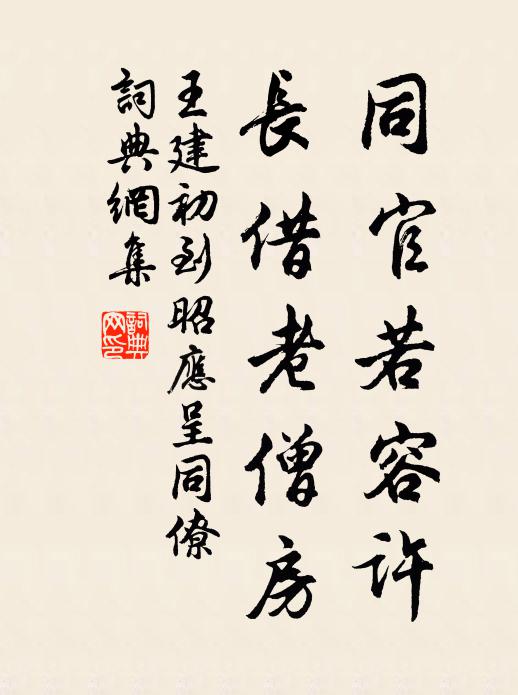 同官若容許
長借老僧房
王建初到昭應呈同僚
詞典網集
詞典網印